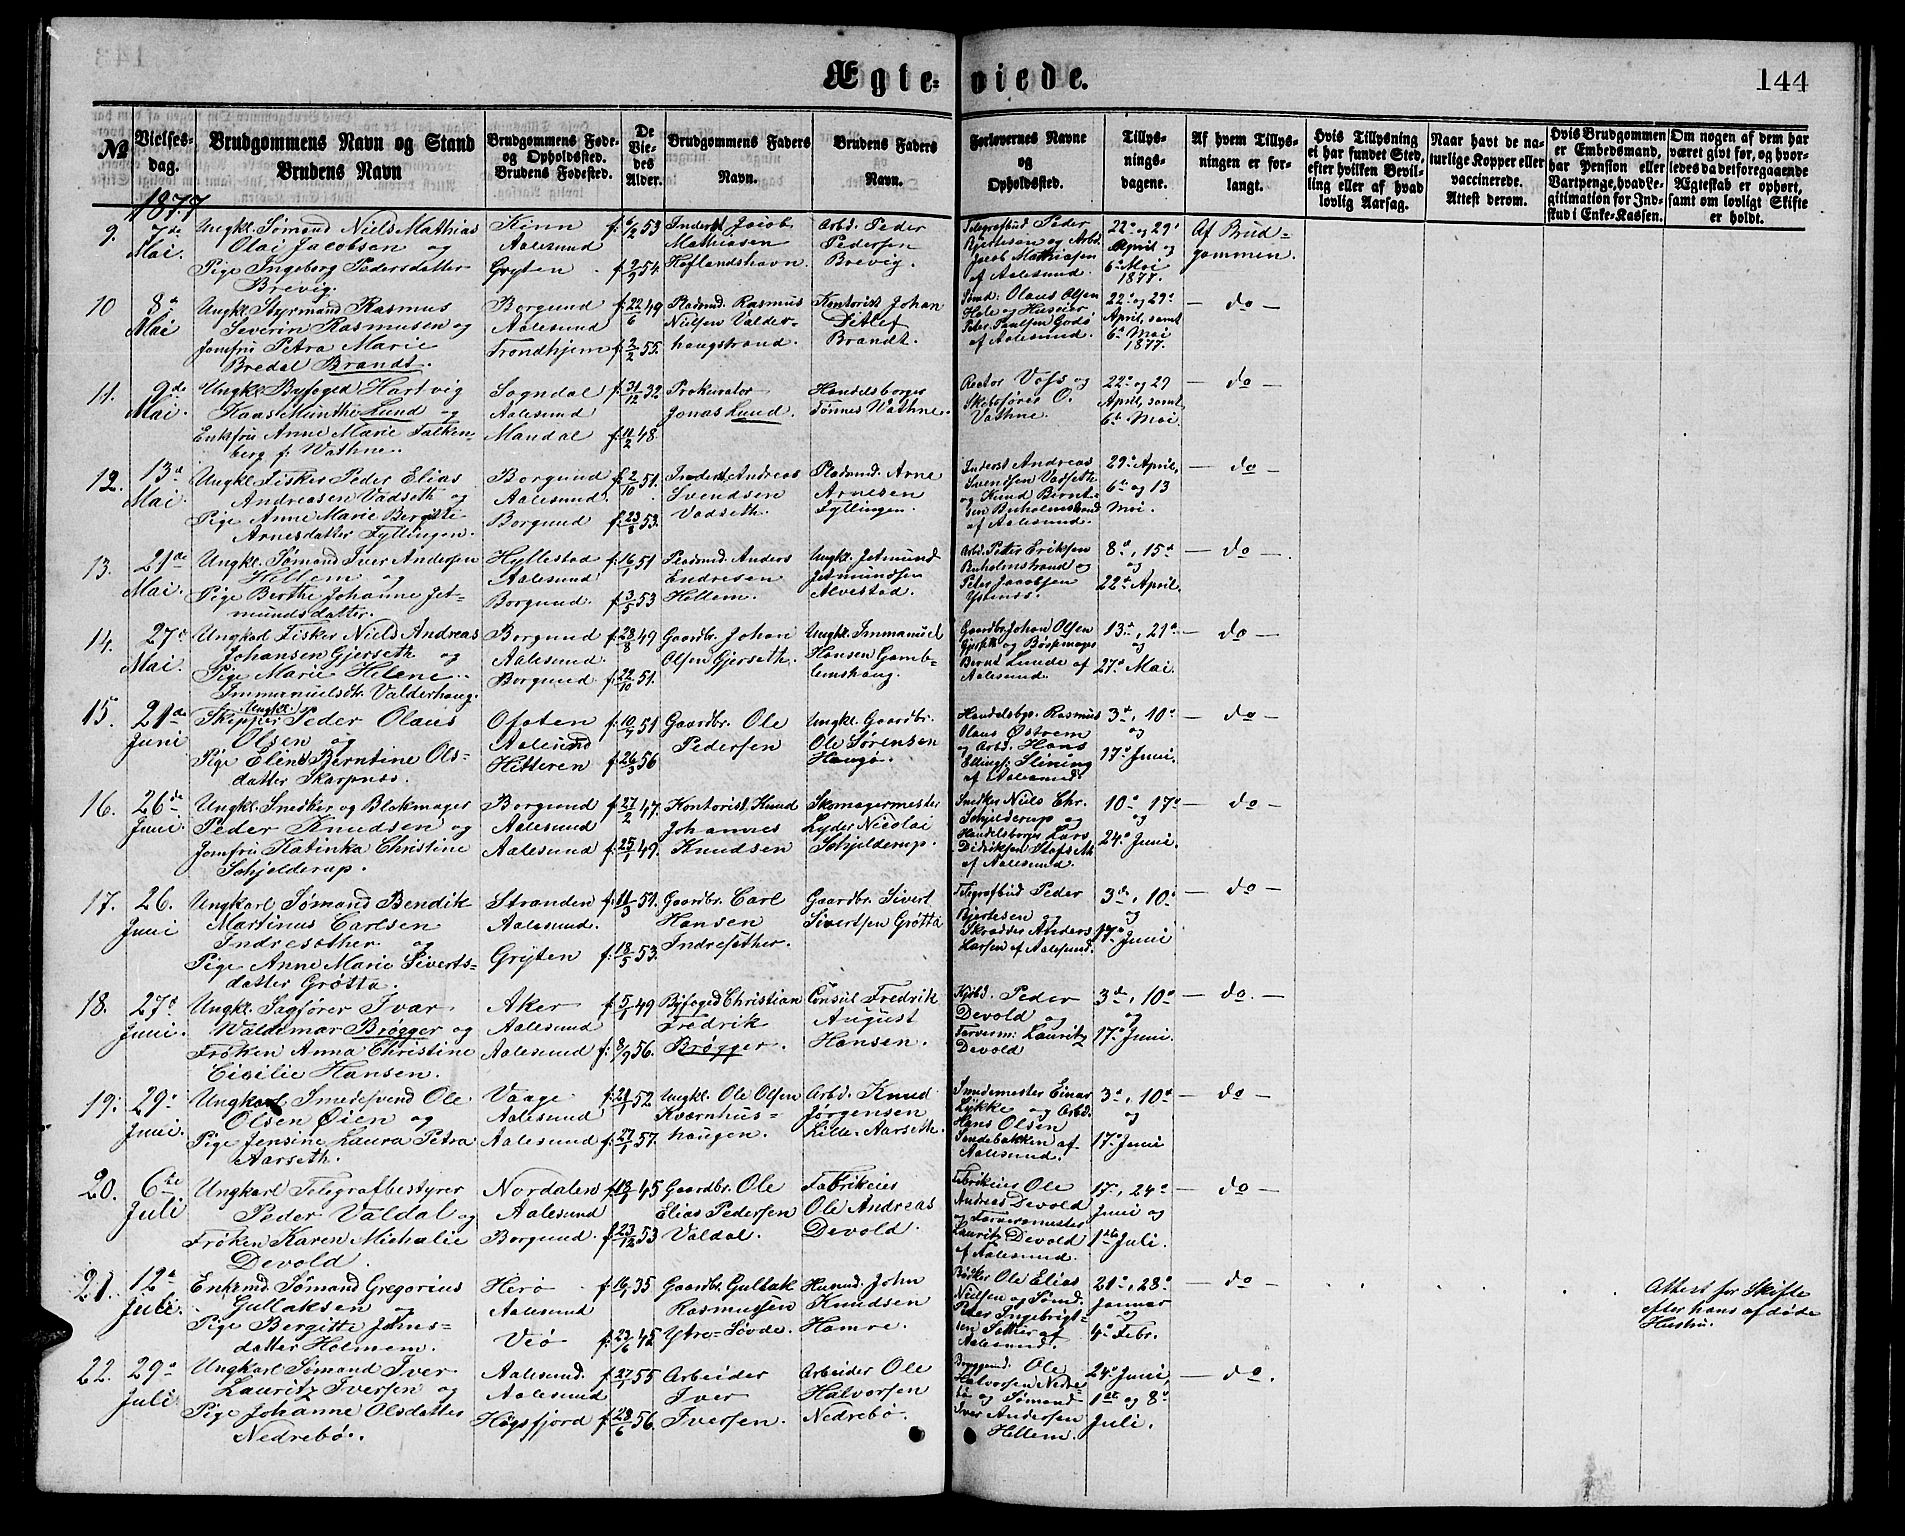 Ægte-viede.
144
№
Vielses-dag.
Brudgommens Navn og Stand
Brudens Navn
Brudgommens Føde- og Opholdssted.
Brudens Fødested.
De Vie-des Alder.
Brudgommens Faders Navn.
Brudens Faders Navn.
Forlovernes Navne og Opholdssted.
Tillys-nings-dagene.
Af hvem Tillys-ningen er for-langt.
Hvis Tillysning ei har fundet Sted, efter hvilken Bevil-ling eller af hvad lovlig Aarsag.
Naar havt de na-turlige Kopper eller vaccinerede. Attest derom.
Hvis Brudgommen er Embedsmand, har Pension eller Vartpenge, hvad Le-gitimation for Ind-skud i Enke-Kassen.
Om nogen af dem har været givt før, og hvor-ledes da det foregaaende Ægteskab er ophørt, samt om lovligt Skifte er holdt.
1877
9. 7de Mai.
Ungkl. Sømand Niels Mathias
Olai Jacobsen og
Pige Ingeborg Pedersdatter
Brevig.
Kinn
Aalesund
Gryten
f. 6/2 53
f. 2/9 54.
Inderst Jacob
Mathiasen
Hoflandshavn.
Arb. Peder
Pedersen
Brevig.
Telegrafbud Peder
Bjertesen og Arbd.
Jacob Mathiasen
af Aalesund.
22de og 29de
April og
6te Mai
1877.
Af Brud-
gommen.
10 8de Mai
Ungkl. Styrmand Rasmus
Severin Rasmusen og
Jomfru Petra Marie
Bredal Brandt.
Borgund
Aalesund
Trondhjem
f. 22/6 49
f. 2/2 55.
Pladsmd. Rasmus
Nielsen Valder-
haugstrand.
Kontorist Johan
Ditlef
Brandt.
Sømd. Olaus Olsen
Hole og Huseier
Peter Paulsen Godø
af Aalesund.
22de og 29de
April, samt
6te Mai
1877.
— do —
11. 9de Mai.
Ungkl. Byfoged Hartvig
Kaas Minthe Lund og
Enkefru Anne Marie Falken-
berg f. Wathne.
Sogndal
Aalesund
Mandal
f. 31/12 32
f. 11/2 48.
Prokurator
Jonas Lund.
Handelsborger
Tønnes Wathne.
Rector Voss og
Skibsfører O.
Vathne.
22de og 29
April, samt
6te Mai.
— do —
12. 13de Mai
Ungkl. Fisker Peder Elias
Andreasen Vadseth og
Pige Anne Marie Bergitte
Arnesdatter Fyllingen.
Borgund
Aalesund.
Borgund
f. 2/10 51.
f. 23/8 53.
Inderst Andreas
Svendsen
Vadseth.
Pladsmd. Arne
Arnesen
Fyllingen.
Inderst Andreas
Svendsen Vadseth
og Knud Bernt-
sen Buholmstrand
af Aalesund.
29de April,
6te og 13
Mai.
— do —
13. 21de Mai.
Ungkl. Sømand Iver Andersen
Hellem og
Pige Berthe Johanne Jet-
mundsdatter.
Hyllestad
Aalesund
Borgund.
f. 16/1 51
f. 3/5 53
Pladsmd. Anders
Endresen
Hellem.
Ungkl. Jetmund
Jetmundsen
Alvestad.
Arbd. Peter Eriksen
Buholmstrand og
Peter Jacobsen
Ystenæs.
8de, 15de
og
22de April
— do —
14. 27de Mai.
Ungkarl Fisker Niels Andreas
Johansen Gjerseth og
Pige Marie Helene
Immanuelsdtr. Valderhaug.
Borgund
Aalesund.
Borgund
f. 28/8 49
f. 22/10 51.
Gaardbr. Johan
Olsen Gjerseth.
Ungkl. Immanuel
Hansen Gamb-
lemshaug.
Gaardbr. Johan Olsen
Gjerseth og Børsemager
Bernt Lunde af
Aalesund.
13de, 21de
og
27de Mai.
— do —
15. 21de Juni
Ungkl. Skipper Peder Olaus
Olsen og
Pige Eline Berntine Ols-
datter Skarpnæs.
Ofoten
Aalesund
Hitteren
f. 10/7 51
f. 26/3 56
Gaardbr. Ole
Pedersen
Ungkl. Gaardbr.
Ole Sørensen
Haugø.
Handelsbgr. Rasmus
Olaus Østrem
og Arbd. Hans
Ellingsen Slining
af Aalesund.
3de, 10de
og
17de Juni.
— do —
16. 26de Juni.
Ungkl. Snedker og Blokmager
Peder Knudsen og
Jomfru Katinka Christine
Schjelderup.
Borgund
Aalesund
Aalesund
f. 27/2 47.
f. 25/1 49.
Kontorist Knud
Johannes
Knudsen
Skomagermester
Lyder Nicolai
Schjelderup.
Snedker Niels Chr.
Schjelderup og
Handelsborger Lars
Didriksen Stafseth
af Aalesund.
10de, 17de
og
24de Juni.
— do —
17. 26. Juni
Ungkarl Sømand Bendik
Martinus Carlsen
Indresæther og
Pige Anne Marie Siverts-
datter Grøtta.
Stranden
Aalesund.
Gryten
f. 11/3 51.
f. 18/5 53.
Gaardbr. Carl
Hansen
Indresæther.
Gaardbr. Sivert
Sivertsen Grøtta
Telegrafbud Peder
Bjertesen og
Skrædder Anders
Larsen af Aalesund.
3de, 10de
og
17de Juni
— do —
18. 27de Juni.
Ungkl. Sagfører Ivar
Waldemar Brøgger og
Frøken Anna Christine
Cicilie Hansen.
Aker
Aalesund
Aalesund
f. 5/1 49
f. 8/9 56.
Byfoged Christian
Fredrik
Brøgger.
Consul Fredrik
August
Hansen.
Kjøbd. Peder
Devold og
Farverm. Lauritz
Devold
3de, 10de
og
17de Juni.
— do. —
19. 29de Juni.
Ungkarl Smedesvend Ole
Olsen Øien og
Pige Jensine Laura Petra
Aarseth.
Vaage
Aalesund
Aalesund
f. 21/1 52.
f. 27/1 57.
Ungkl. Ole Olsen
Kværnhus-
haugen.
Arbd. Knud
Jørgensen
Lille-Aarseth.
Smedemester Einar
Lykke og Arbd.
Hans Olsen
Sandebakken af
Aalesund.
3de, 10de
og
17de Juni
— do —
20. 6te Juli
Ungkarl Telegrafbestyrer
Peder Valdal og
Frøken Karen Michalie
Devold.
Nordalen
Aalesund.
Borgund.
f. 18/1 45
f. 23/12 53
Gaardbr. Ole
Elias Pedersen
Valdal.
Fabrikeier
Ole Andreas
Devold
Fabrikeier Ole
Andreas Devold
og Farvermester
Lauritz Devold
af Aalesund.
17de, 24de
Juni og
1ste Juli.
— do —
21. 12te Juli.
Enkemd. Sømand Gregorius
Gullaksen og
Pige Bergitte Johns-
datter Holmem.
Herø
Aalesund
Veø
f. 16/1 35
f. 23/6 45
Gaardbr. Gullak
Rasmussen
Ytre-Søvde.
Husmd. John
Knudsen
Hamre.
Bødker Ole Elias
Nielsen og Sømd.
Peter Ingebrigt-
sen Sætter af
Aalesund.
21de, 28de
Januar
og
4de Febr.
— do —
Attest for Skifte
efter hans afdøde
Hustru.
22. 29de Juli
Ungkarl Sømand Iver
Lauritz Iversen og
Pige Johanne Olsdatter
Nedrebø.
Aalesund.
Aalesund
Høgsfjord
f. 27/1 55
f. 28/6 56.
Arbeider
Iver
Iversen.
Arbeider Ole
Halvorsen
Nedrebø.
Ole
Halvorsen Nedre-
bø og Sømand
Iver Andersen
Hellem.
24de Juni,
1ste og 8de
Juli.
— do.